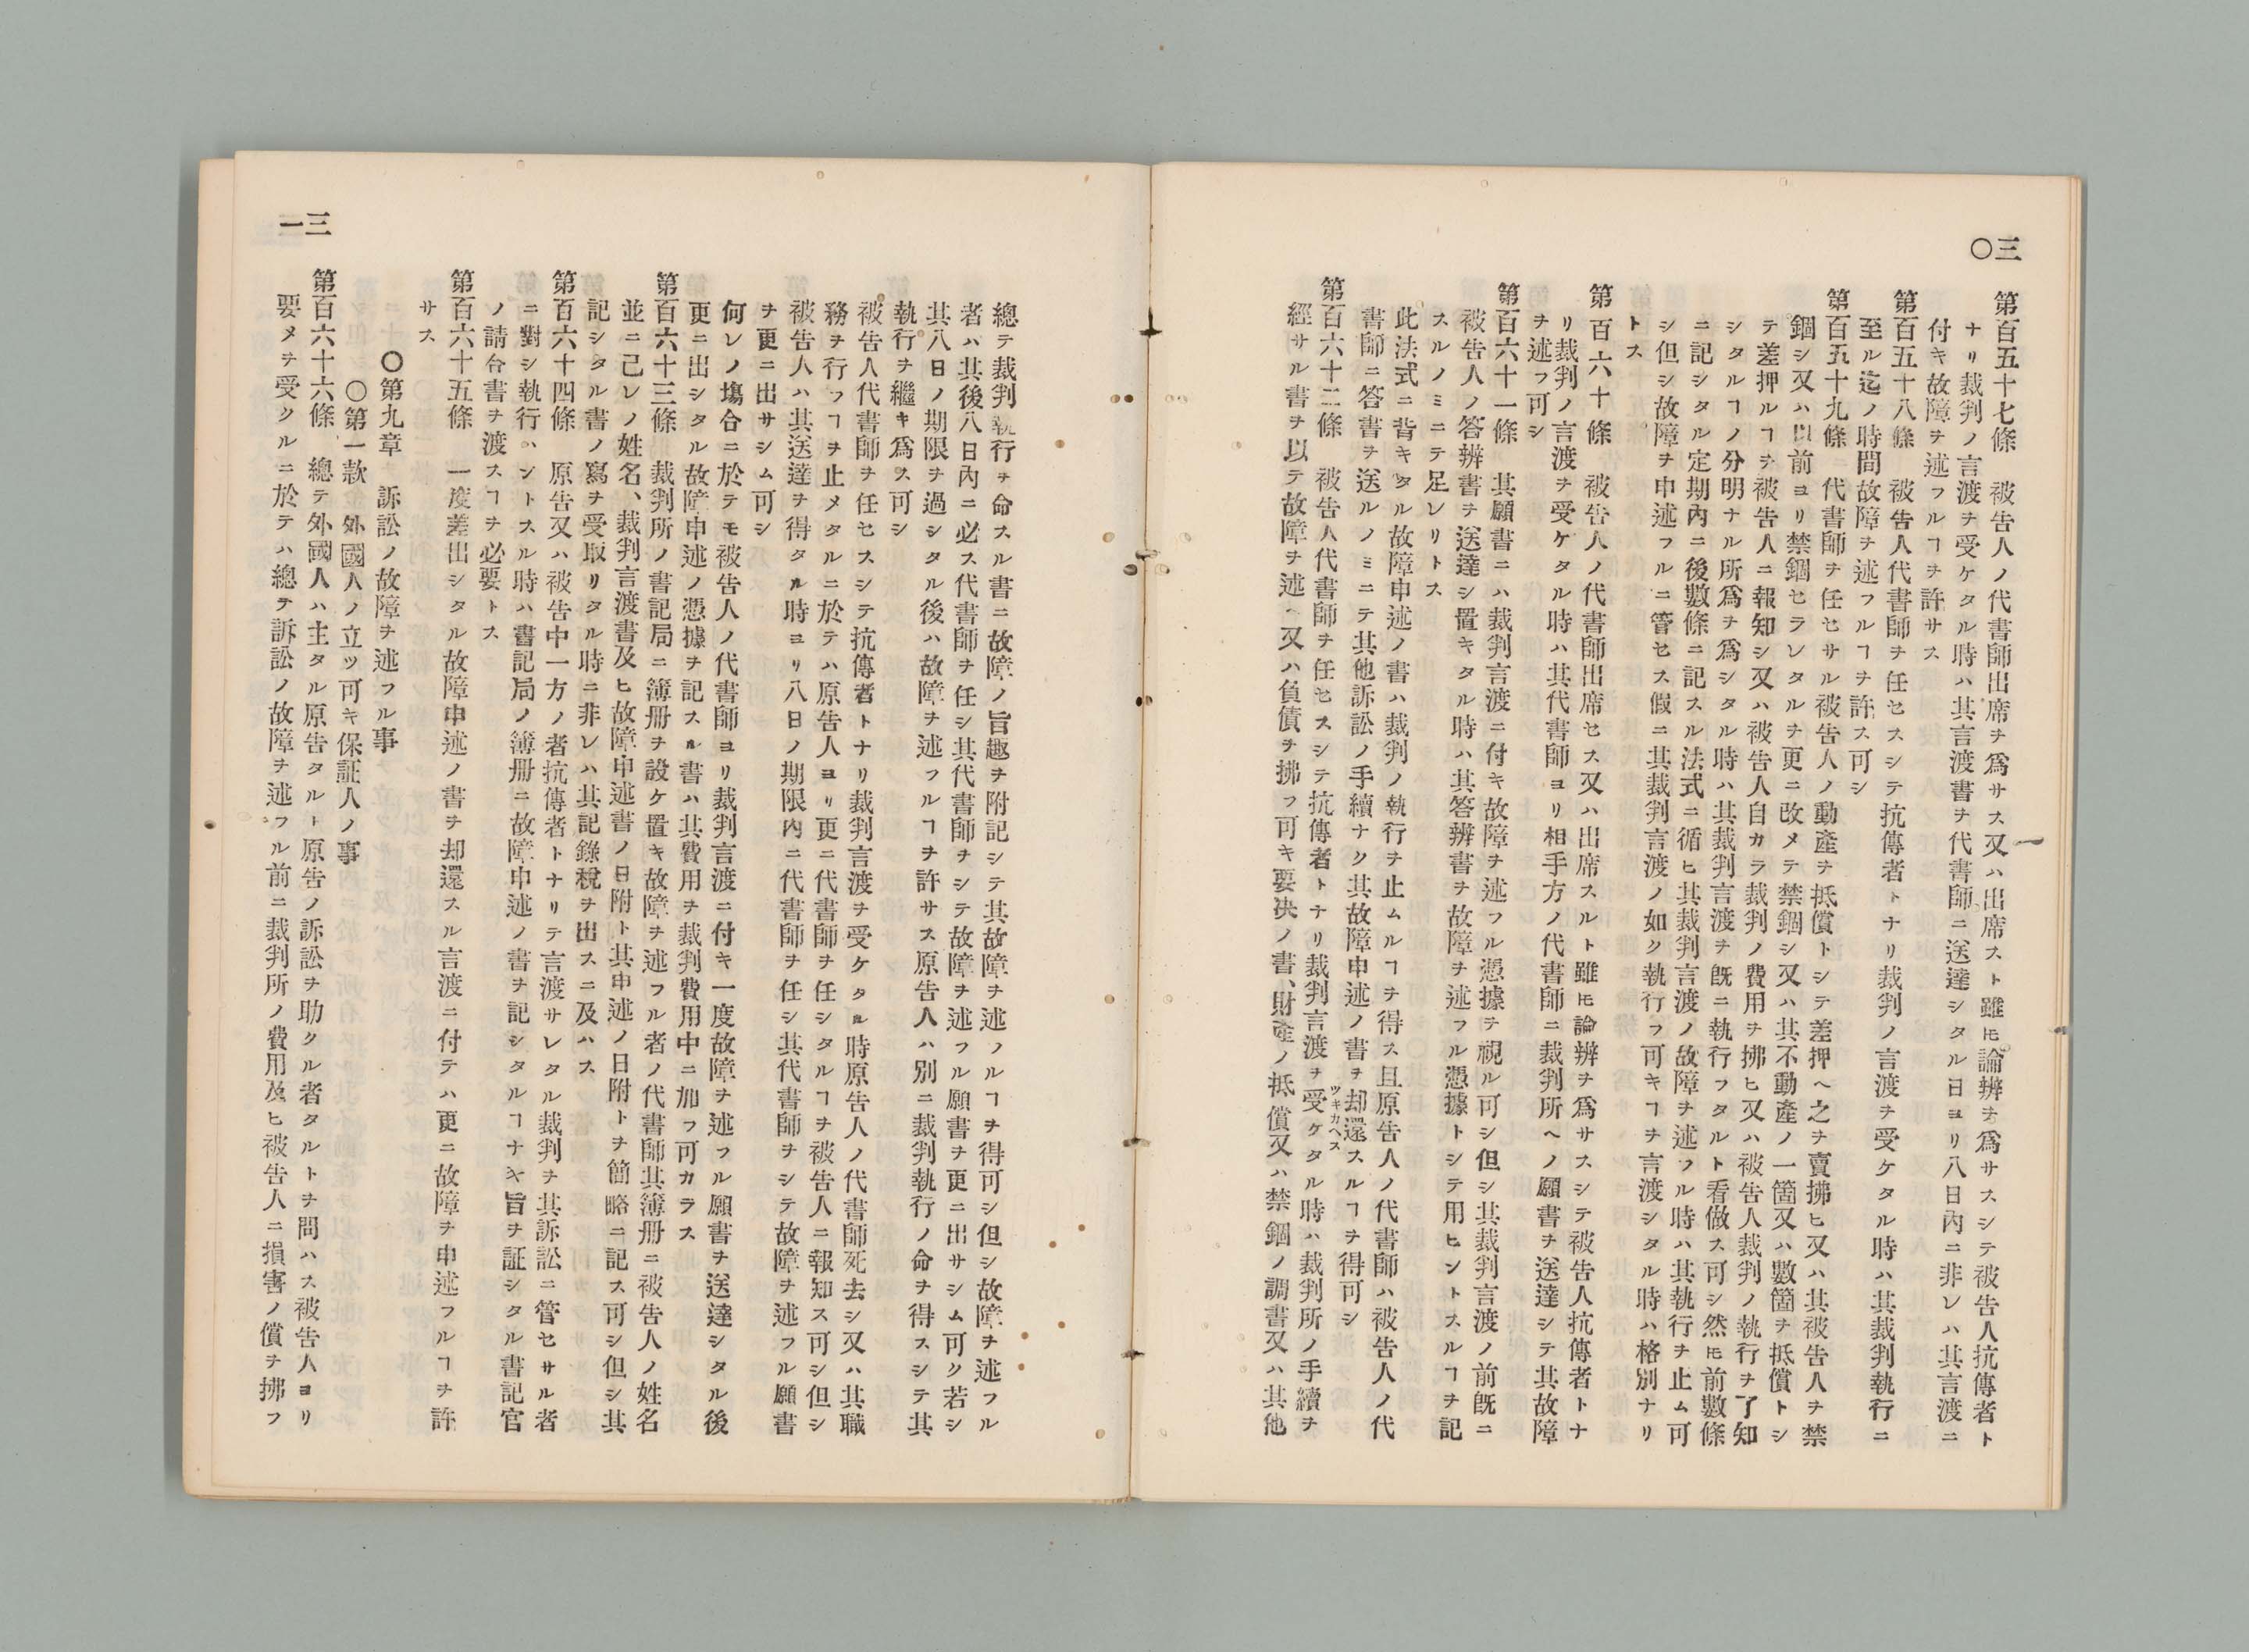 三〇
第百五十七條　被告人ノ代書師出席ヲ爲サス又ハ出席スト雖𪜈論辨ヲ爲サスシテ被告人抗傳者ト
ナリ裁判ノ言渡ヲ受ケタル時ハ其言渡書ヲ代書師ニ送達シタル日ヨリ八日內ニ非レハ其言渡ニ
付キ故障ヲ述フルヿヲ許サス
第百五十八條　被告人代書師ヲ任セスシテ抗傳者トナリ裁判ノ言渡ヲ受ケタル時ハ其裁判執行ニ
至ル迄ノ時間故障ヲ述フルヿヲ許ス可シ
第百五十九條　代書師ヲ任セサル被告人ノ動產ヲ抵償トシテ差押ヘ之ヲ賣拂ヒ又ハ其被告人ヲ禁
錮シ又ハ以前ヨリ禁錮セラレタルヲ更ニ改メテ禁錮シ又ハ其不動產ノ一箇又ハ數箇ヲ抵償トシ
テ差押ルヿヲ被告人ニ報知シ又ハ被告人自カラ裁判ノ費用ヲ拂ヒ又ハ被告人裁判ノ執行ヲ了知
シタルヿノ分明ナル所爲ヲ爲シタル時ハ其裁判言渡ヲ既ニ執行フタルト看做ス可シ然𪜈前數條
ニ記シタル定期內ニ後數條ニ記スル法式ニ循ヒ其裁判言渡ノ故障ヲ述フル時ハ其執行ヲ止ム可
シ但シ故障ヲ申述フルニ管セス假ニ其裁判言渡ノ如ク執行フ可キヿヲ言渡シタル時ハ格別ナリ
トス
第百六十條　被告人ノ代書師出席セス又ハ出席スルト雖𪜈論辨ヲ爲サスシテ被告人抗傳者トナ
リ裁判ノ言渡ヲ受ケタル時ハ其代書師ヨリ相手方ノ代書師ニ裁判所ヘノ願書ヲ送達シテ其故障
ヲ述フ可シ
第百六十一條　其願書ニハ裁判言渡ニ付キ故障ヲ述フル憑據ヲ視ル可シ但シ其裁判言渡ノ前既ニ
被告人ノ答辨書ヲ送達シ置キタル時ハ其答辨書ヲ故障ヲ述フル憑據トシテ用ヒントスルヿヲ記
スルノミニテ足レリトス
此法式ニ背キタル故障申述ノ書ハ裁判ノ執行ヲ止ムルヿヲ得ス且原告人ノ代書師ハ被告人ノ代
書師ニ答書ヲ送ルノミニテ其他訴訟ノ手續ナク其故障申述ノ書ヲ却還スルヿヲ得可シ
ツキカヘス
第百六十二條　被告人代書師ヲ任セスシテ抗傳者トナリ裁判言渡ヲ受ケタル時ハ裁判所ノ手續ヲ
經サル書ヲ以テ故障ヲ述ヘ又ハ負債ヲ拂フ可キ要决ノ書、財產ノ抵償又ハ禁錮ノ調書又ハ其他
三一
總テ裁判執行ヲ命スル書ニ故障ノ旨趣ヲ附記シテ其故障ヲ述ノルヿヲ得可シ但シ故障ヲ述フル
者ハ其後八日內ニ必ス代書師ヲ任シ其代書師ヲシテ故障ヲ述フル願書ヲ更ニ出サシム可ク若シ
其八日ノ期限ヲ過シタル後ハ故障ヲ述フルヿヲ許サス原告人ハ別ニ裁判執行ノ命ヲ得スシテ其
執行ヲ繼キ爲ス可シ
被告人代書師ヲ任セスシテ抗傳者トナリ裁判言渡ヲ受ケタル時原告人ノ代書師死去シ又ハ其職
務ヲ行フヿヲ止メタルニ於テハ原告人ヨリ更ニ代書師ヲ任シタルヿヲ被告人ニ報知ス可シ但シ
被告人ハ其送達ヲ得タル時ヨリ八日ノ期限內ニ代書師ヲ任シ其代書師ヲシテ故障ヲ述フル願書
ヲ更ニ出サシム可シ
何レノ塲合ニ於テモ被告人ノ代書師ヨリ裁判言渡ニ付キ一度故障ヲ述フル願書ヲ送達シタル後
更ニ出シタル故障申述ノ憑據ヲ記スル書ハ其費用ヲ裁判費用中ニ加フ可カラス
第百六十三條　裁判所ノ書記局ニ簿册ヲ設ケ置キ故障ヲ述フル者ノ代書師其簿册ニ被告人ノ姓名
並ニ己レノ姓名、裁判言渡書及ヒ故障申述書ノ日附ト其申述ノ日附トヲ簡略ニ記ス可シ但シ其
記シタル書ノ寫ヲ受取リタル時ニ非レハ其記錄稅ヲ出スニ及ハス
第百六十四條　原告又ハ被告中一方ノ者抗傳者トナリテ言渡サレタル裁判ヲ其訴訟ニ管セサル者
ニ對シ執行ハントスル時ハ書記局ノ簿册ニ故障申述ノ書ヲ記シタルヿナキ旨ヲ証シタル書記官
ノ請合書ヲ渡スヿヲ必要トス
第百六十五條　一度差出シタル故障申述ノ書ヲ却還スル言渡ニ付テハ更ニ故障ヲ申述フルヿヲ許
サス
〇第九章　訴訟ノ故障ヲ述フル事
〇第一款　外國人ノ立ツ可キ保証人ノ事
第百六十六條　總テ外國人ハ主タル原告タルト原告ノ訴訟ヲ助クル者タルトヲ問ハス被告人ヨリ
要メヲ受クルニ於テハ總テ訴訟ノ故障ヲ述フル前ニ裁判所ノ費用及ヒ被告人ニ損害ノ償ヲ拂フ